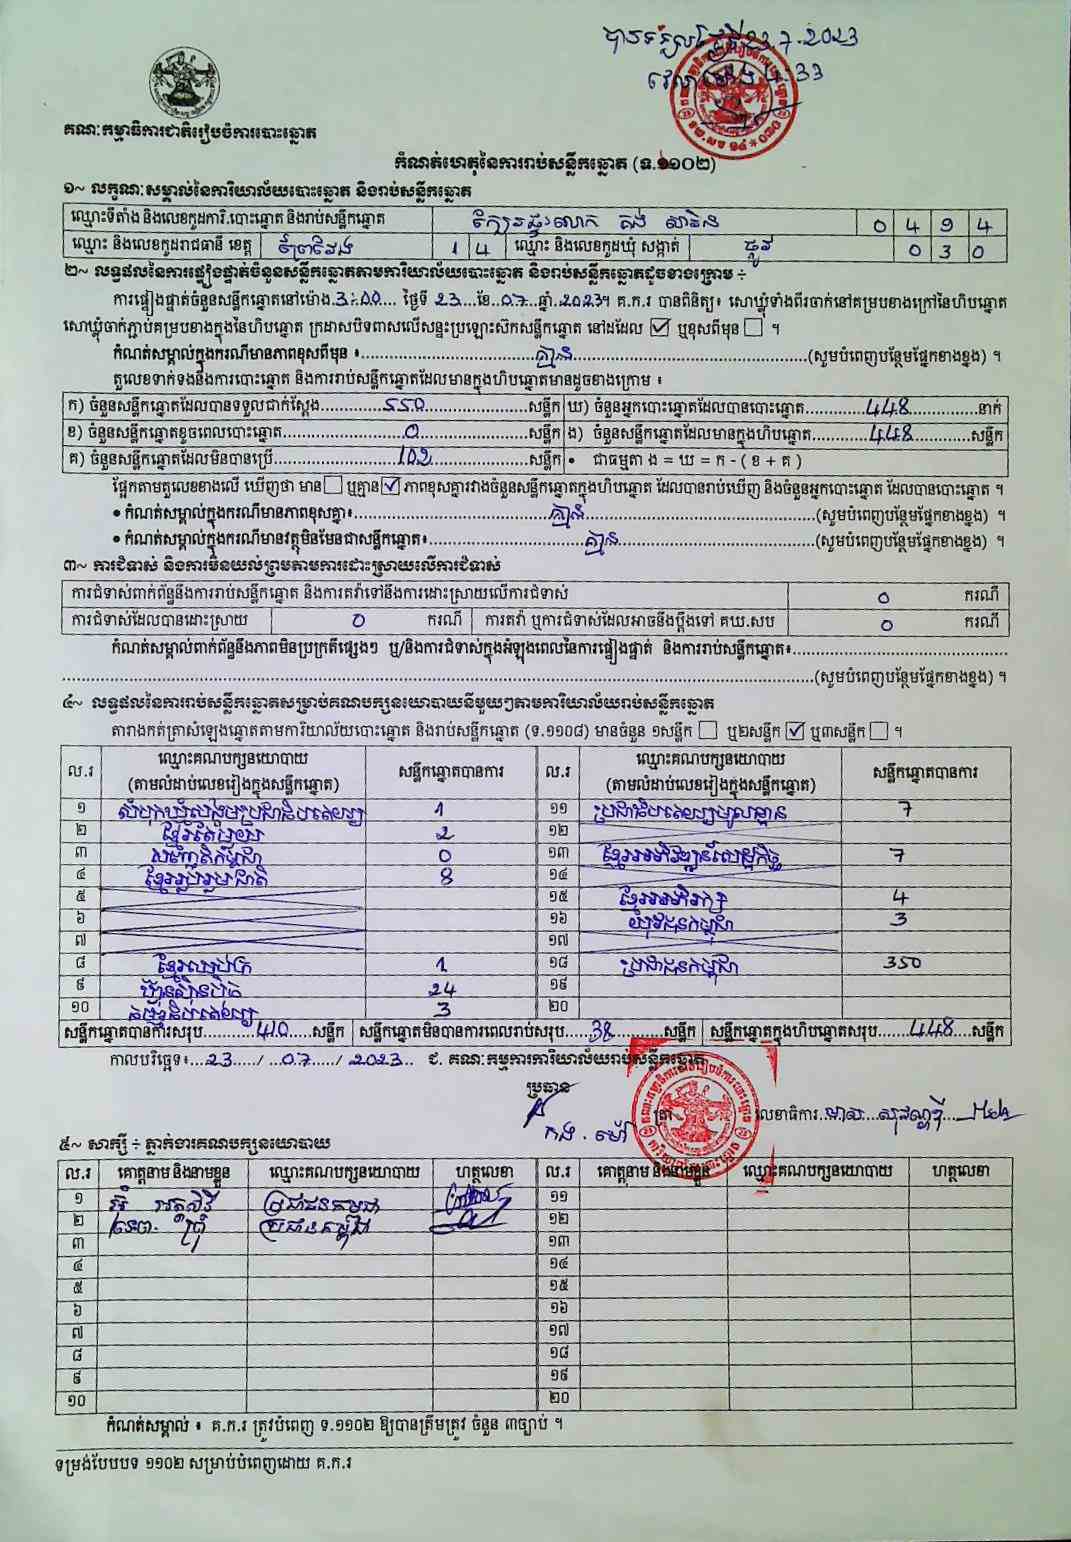 បានទទួលថ្ងៃទី23.7.2023
វេលាម៉ោង 4:33
គណៈកម្មាធិការជាតិរៀបចំការបោះឆ្នោត
កំណត់ហេតុនៃការរាប់សន្លឹកឆ្នោត (ទ.១១០២)
១~ លក្ខណៈសម្គាល់នៃការិយាល័យបោះឆ្នោត និងរាប់សន្លឹកឆ្នោត
ឈ្មោះទីតាំង និងលេខកូដការិ.បោះឆ្នោត និងរាប់សន្លឹកឆ្នោត 0 4 9 4
ឈ្មោះ និងលេខកូដរាជធានី ខេត្ត ព្រៃវែង 1 4 ឈ្មោះ និងលេខកូដឃុំ សង្កាត់ 0 3 0
២~ លទ្ធផលនៃការផ្ទៀងផ្ទាត់ចំនួនសន្លឹកឆ្នោតតាមការិយាល័យបោះឆ្នោត និងរាប់សន្លឹកឆ្នោតដូចខាងក្រោម ÷
ការផ្ទៀងផ្ទាត់ចំនួនសន្លឹកឆ្នោតនៅម៉ោង.3:00.... ថ្ងៃទី 23...ខែ..07...ឆ្នាំ.2023។ គ.ក.រ បានពិនិត្យ៖ សោឃ្លុំទាំងពីរចាក់នៅគម្របខាងក្រៅនៃហិបឆ្នោត
សោឃ្លុំចាក់ភ្ជាប់គម្របខាងក្នុងនៃហិបឆ្នោត ក្រដាសបិទពាសលើសន្ទះប្រឡោះស៊កសន្លឹកឆ្នោត នៅដដែល ☑ ឬខុសពីមុន ☐ ។
កំណត់សម្គាល់ក្នុងករណីមានភាពខុសពីមុន ៖........គ្មាន........(សូមបំពេញបន្ថែមផ្នែកខាងខ្នង) ។
តួលេខទាក់ទងនឹងការបោះឆ្នោត និងការរាប់សន្លឹកឆ្នោតដែលមានក្នុងហិបឆ្នោតមានដូចខាងក្រោម ៖
ក) ចំនួនសន្លឹកឆ្នោតដែលបានទទួលជាក់ស្តែង........550........សន្លឹក ឃ) ចំនួនអ្នកបោះឆ្នោតដែលបានបោះឆ្នោត........448........នាក់
ខ) ចំនួនសន្លឹកឆ្នោតខូចពេលបោះឆ្នោត........0........សន្លឹក ង) ចំនួនសន្លឹកឆ្នោតដែលមានក្នុងហិបឆ្នោត........448........សន្លឹក
គ) ចំនួនសន្លឹកឆ្នោតដែលមិនបានប្រើ........102........សន្លឹក • ជាធម្មតា ង = ឃ = ក - ( ខ + គ )
ផ្អែកតាមតួលេខខាងលើ ឃើញថា មាន ☐ ឬគ្មាន ☑ ភាពខុសគ្នារវាងចំនួនសន្លឹកឆ្នោតក្នុងហិបឆ្នោត ដែលបានរាប់ឃើញ និងចំនួនអ្នកបោះឆ្នោត ដែលបានបោះឆ្នោត ។
• កំណត់សម្គាល់ក្នុងករណីមានភាពខុសគ្នា៖........គ្មាន........(សូមបំពេញបន្ថែមផ្នែកខាងខ្នង) ។
• កំណត់សម្គាល់ក្នុងករណីមានវត្ថុមិនមែនជាសន្លឹកឆ្នោត៖........គ្មាន........(សូមបំពេញបន្ថែមផ្នែកខាងខ្នង) ។
៣~ ការជំទាស់ និងការមិនយល់ព្រមតាមការដោះស្រាយលើការជំទាស់
ការជំទាស់ពាក់ព័ន្ធនឹងការរាប់សន្លឹកឆ្នោត និងការតវ៉ាទៅនឹងការដោះស្រាយលើការជំទាស់ 0 ករណី
ការជំទាស់ដែលបានដោះស្រាយ 0 ករណី ការតវ៉ា ឬការជំទាស់ដែលអាចនឹងប្តឹងទៅ គឃ.សប 0 ករណី
កំណត់សម្គាល់ពាក់ព័ន្ធនឹងភាពមិនប្រក្រតីផ្សេងៗ ឬ/និងការជំទាស់ក្នុងអំឡុងពេលនៃការផ្ទៀងផ្ទាត់ និងការរាប់សន្លឹកឆ្នោត៖........
........(សូមបំពេញបន្ថែមផ្នែកខាងខ្នង) ។
៤~ លទ្ធផលនៃការរាប់សន្លឹកឆ្នោតសម្រាប់គណបក្សនយោបាយនីមួយៗតាមការិយាល័យរាប់សន្លឹកឆ្នោត
តារាងកត់ត្រាសំឡេងឆ្នោតតាមការិយាល័យបោះឆ្នោត និងរាប់សន្លឹកឆ្នោត (ទ.១១០៨) មានចំនួន ១សន្លឹក ☐ ឬ២សន្លឹក ☑ ឬ៣សន្លឹក ☐ ។
ល.រ ឈ្មោះគណបក្សនយោបាយ (តាមលំដាប់លេខរៀងក្នុងសន្លឹកឆ្នោត) សន្លឹកឆ្នោតបានការ ល.រ ឈ្មោះគណបក្សនយោបាយ (តាមលំដាប់លេខរៀងក្នុងសន្លឹកឆ្នោត) សន្លឹកឆ្នោតបានការ
១ សំបុកឃ្មុំសង្គមប្រជាធិបតេយ្យ 1 ១១ ប្រជាធិបតេយ្យមូលដ្ឋាន 7
២ ខ្មែរតែមួយ 2 ១២
៣ សញ្ជាតិកម្ពុជា 0 ១៣ ខ្មែរអភិវឌ្ឍន៍សេដ្ឋកិច្ច 7
៤ ខ្មែររួបរួមជាតិ 8 ១៤
៥ ១៥ ខ្មែរអភិរក្ស 4
៦ ១៦ យុវជនកម្ពុជា 3
៧ ១៧
៨ ខ្មែរឈប់ក្រ 1 ១៨ ប្រជាជនកម្ពុជា 350
៩ ហ៊្វុនស៊ិនប៉ិច 24 ១៩
១០ ធម្មាធិបតេយ្យ 3 ២០
សន្លឹកឆ្នោតបានការសរុប.....410.....សន្លឹក សន្លឹកឆ្នោតមិនបានការពេលរាប់សរុប....38....សន្លឹក សន្លឹកឆ្នោតក្នុងហិបឆ្នោតសរុប.....448....សន្លឹក
កាលបរិច្ឆេទ៖...23...../ ...07...../ 2023.. ជ. គណៈកម្មការការិយាល័យរាប់សន្លឹកឆ្នោត
ប្រធាន
ត្រា លេខាធិការ
កង . ម៉ៅ
៥~ សាក្សី ÷ ភ្នាក់ងារគណបក្សនយោបាយ
ល.រ គោត្តនាម និងនាមខ្លួន ឈ្មោះគណបក្សនយោបាយ ហត្ថលេខា ល.រ គោត្តនាម និងនាមខ្លួន ឈ្មោះគណបក្សនយោបាយ ហត្ថលេខា
១ ប្រជាជនកម្ពុជា ១១
២ ប្រជាជនកម្ពុជា ១២
៣ ១៣
៤ ១៤
៥ ១៥
៦ ១៦
៧ ១៧
៨ ១៨
៩ ១៩
១០ ២០
កំណត់សម្គាល់ ៖ គ.ក.រ ត្រូវបំពេញ ទ.១១០២ ឱ្យបានត្រឹមត្រូវ ចំនួន ៣ច្បាប់ ។
ទម្រង់បែបបទ ១១០២ សម្រាប់បំពេញដោយ គ.ក.រ